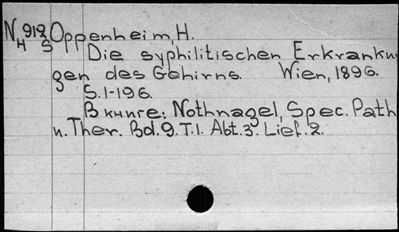 N 918 Oppenheim, H.
H S
Die syphilitischen Erkranku
gen des Gehirns. Wien, 1896.
S. 1-196.
В книге: Nothnagel, Spec. Path
u. Ther. Bd. 9. T. 1. Abt. 3. Lief. 2.